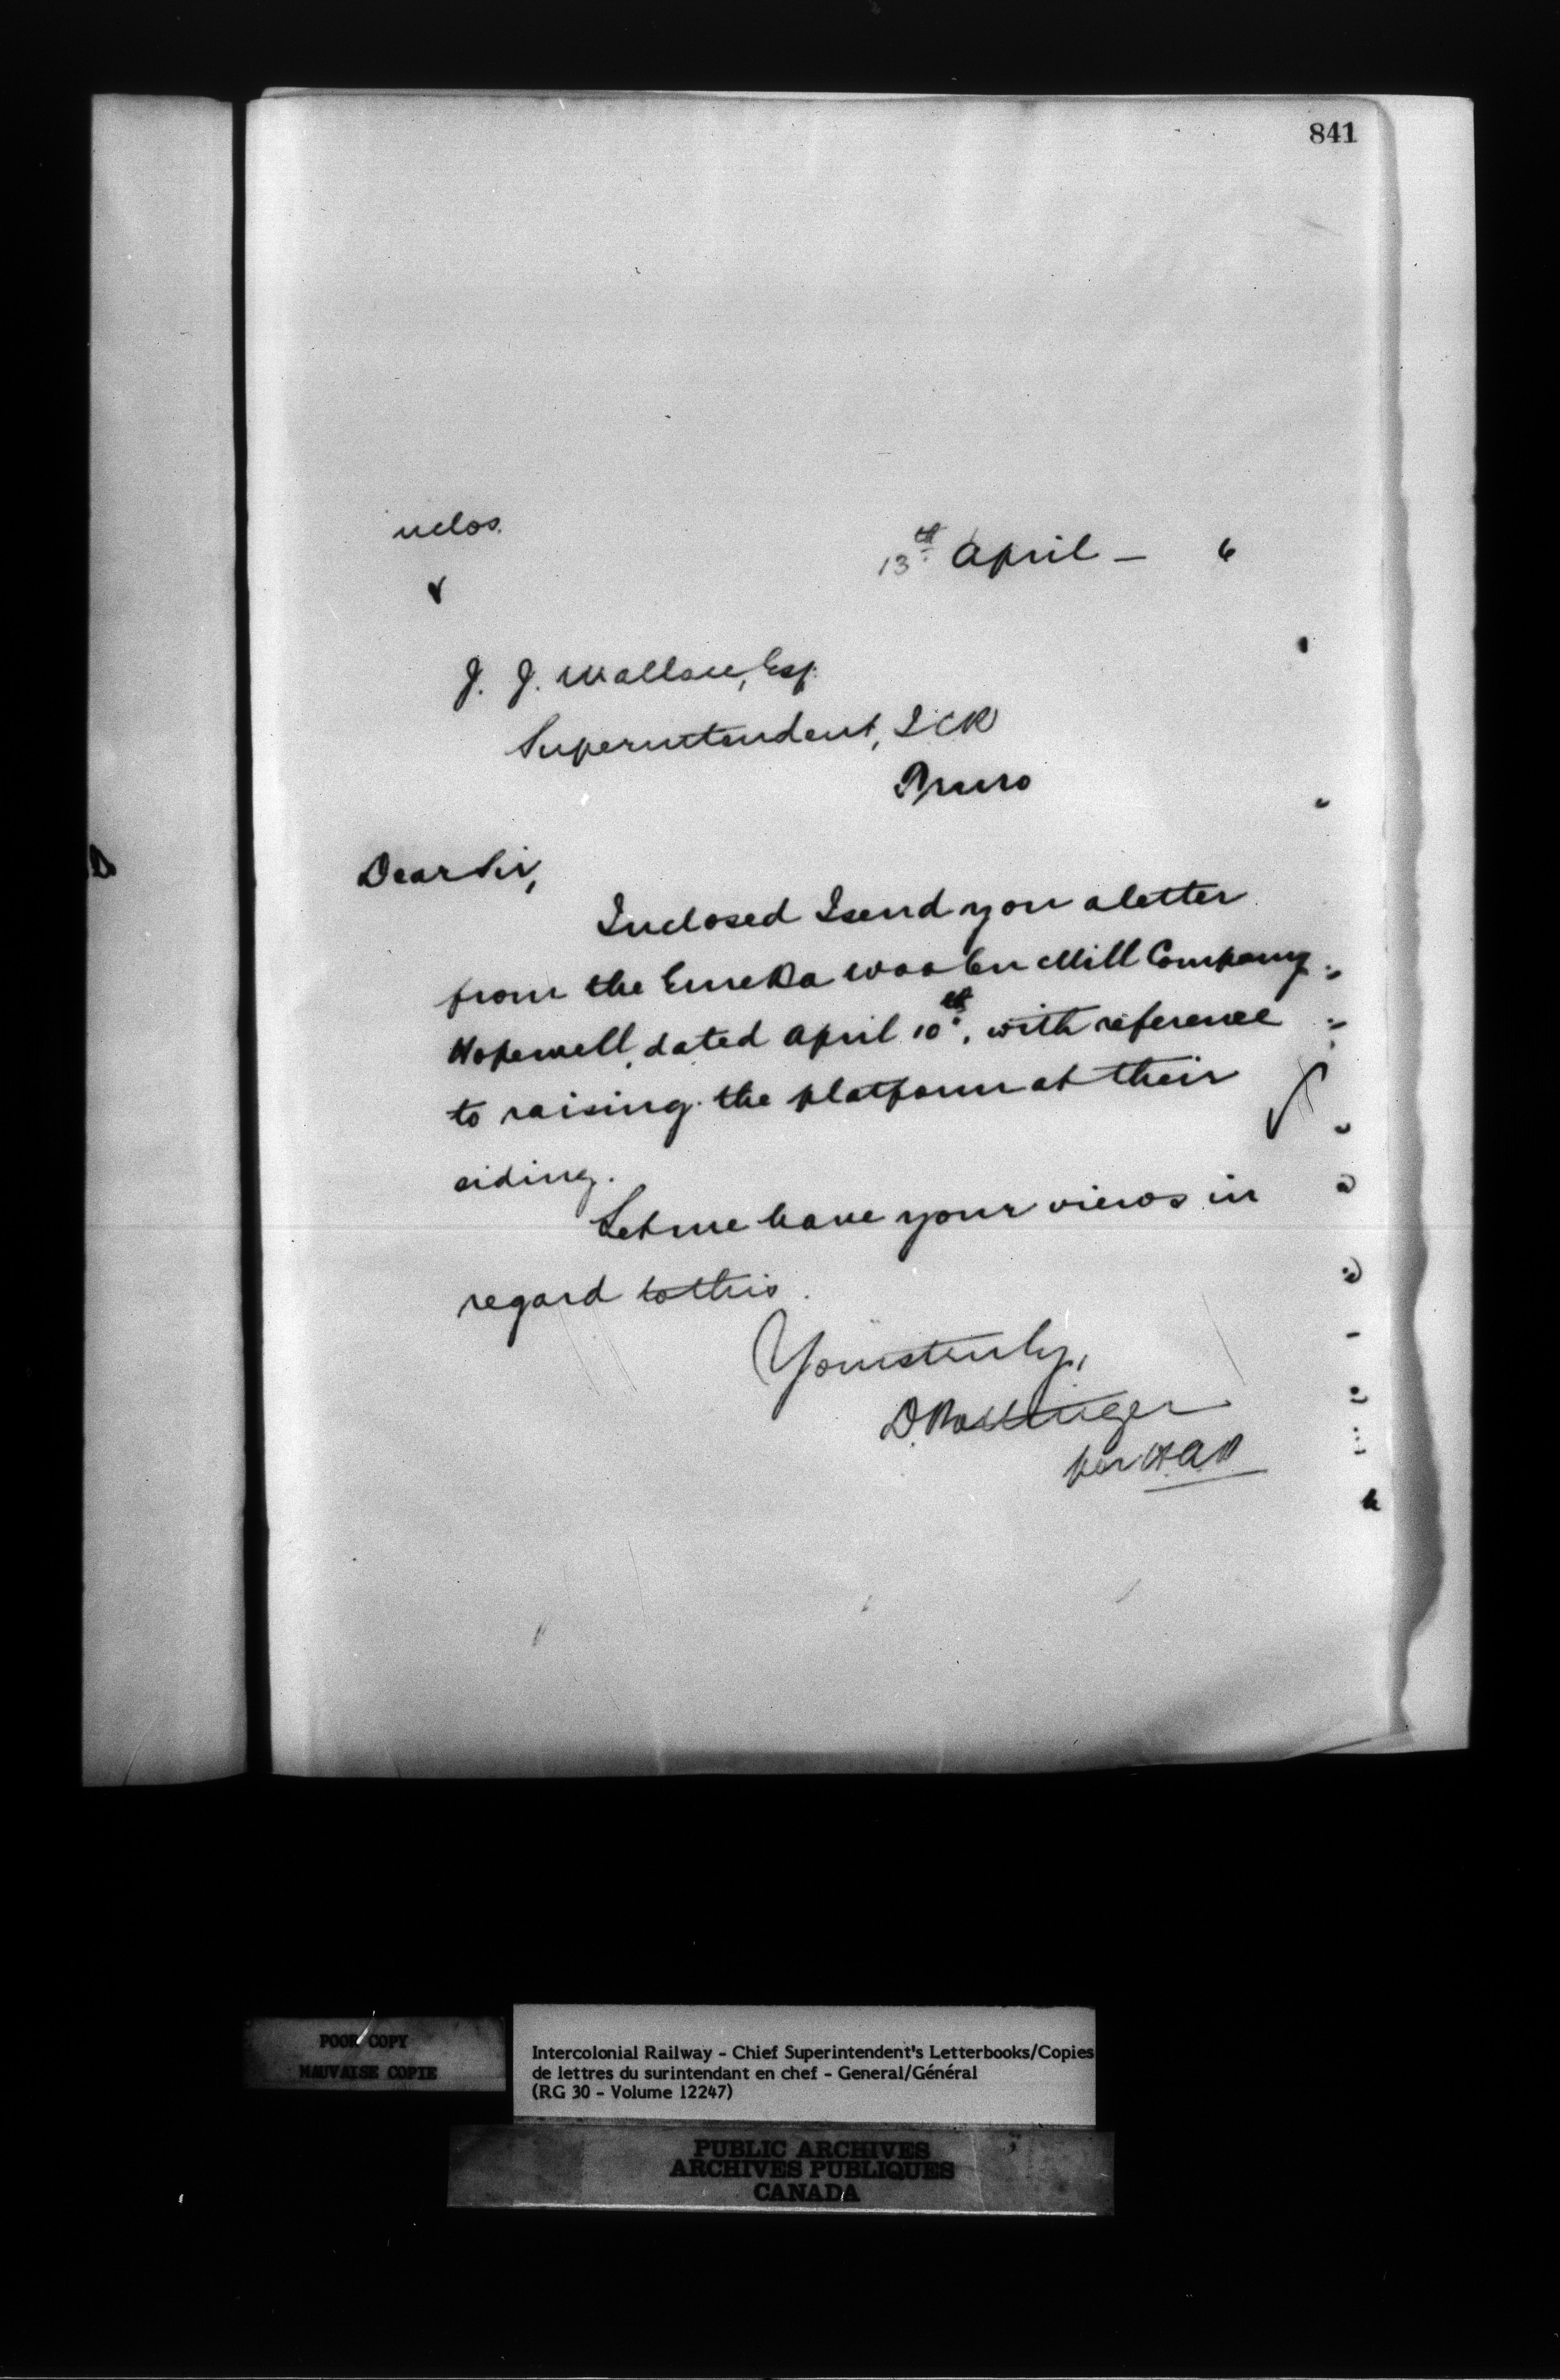 841
nclos.
13th April – 6
J. J. Wallace, Esq.
Superintendent, ICR
Truro
Dear Sir,
Inclosed I send you a letter
from the Eureka Woolen Mill Company
Hopewell, dated April 10th, with reference
to raising the platform at their
siding.
Let me have your views in
regard to this.
Yours truly,
D. Pottinger
per
POOR COPY
MAUVAISE COPIE
Intercolonial Railway - Chief Superintendent's Letterbooks/Copies
de lettres du surintendant en chef - General/Général
(RG 30 - Volume 12247)
PUBLIC ARCHIVES
ARCHIVES PUBLIQUES
CANADA